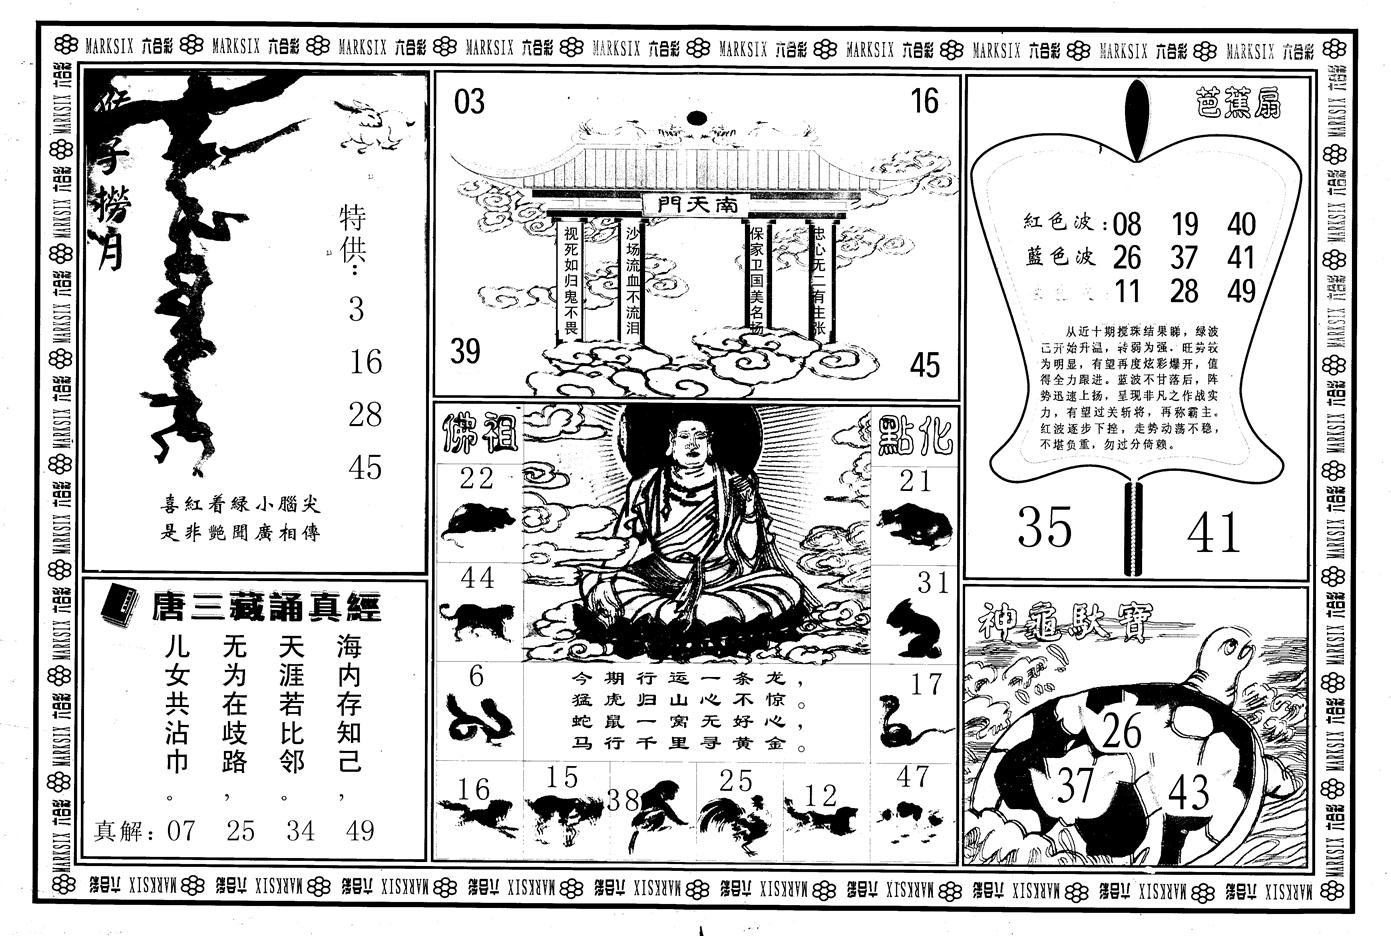 MARKSIX 六合彩 MARKSIX 六合彩 MARKSIX 六合彩 MARKSIX 六合彩 MARKSIX 六合彩 MARKSIX 六合彩 MARKSIX 六合彩 MARKSIX 六合彩 MARKSIX 六合彩 MARKSIX 六合彩
猴子撈月
特供：
3
16
28
45
喜紅着綠小腦尖
是非艷聞廣相傳
03
16
南天門
视死如归鬼不畏
沙场流血不流泪
保家卫国美名扬
忠心无二有主张
39
45
芭蕉扇
紅色波：08 19 40
藍色波 26 37 41
11 28 49
从近十期搅珠结果睇，绿波
已开始升温，转弱为强．旺势较
为明显，有望再度炫彩爆开，值
得全力跟进。蓝波不甘落后，阵
势迅速上扬，呈现非凡之作战实
力，有望过关斩将，再称霸主。
红波逐步下挫，走势动荡不稳，
不堪负重，勿过分倚赖。
35
41
唐三藏誦真經
海内存知己，
天涯若比邻。
无为在歧路，
儿女共沾巾。
真解：07 25 34 49
佛祖
點化
22
21
44
31
6
17
今期行运一条龙，
猛虎归山心不惊。
蛇鼠一窝无好心，
马行千里寻黄金。
16
15
38
25
12
47
神龜馱寶
26
37
43